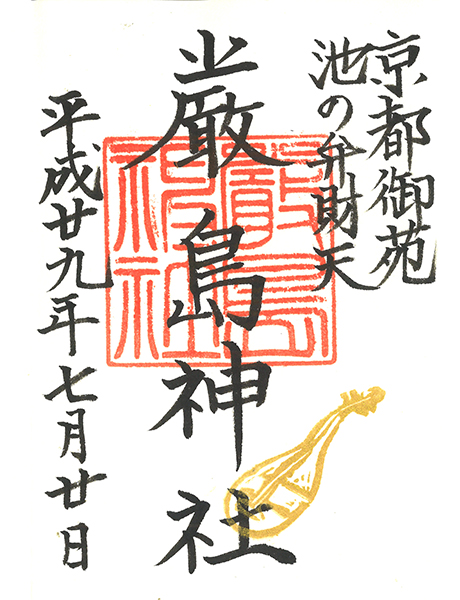 京都御苑
池の弁財天
厳島神社
平成廿九年七月廿日
嚴島神社